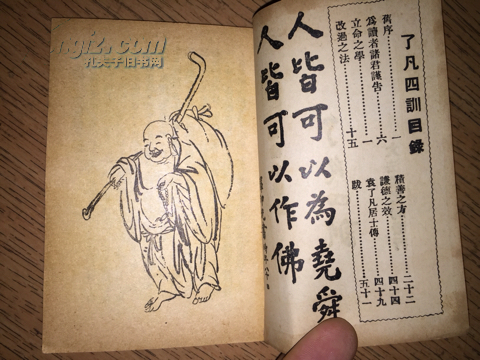 了凡四訓目錄
舊序……………一
爲讀者諸君謹告……六
立命之學…………一
改過之法…………十五
積善之方…………二十二
謙德之效…………四十四
袁了凡居士傳………四十九
跋……………五十一
人皆可以為堯舜
人皆可以作佛
孔夫子旧书网